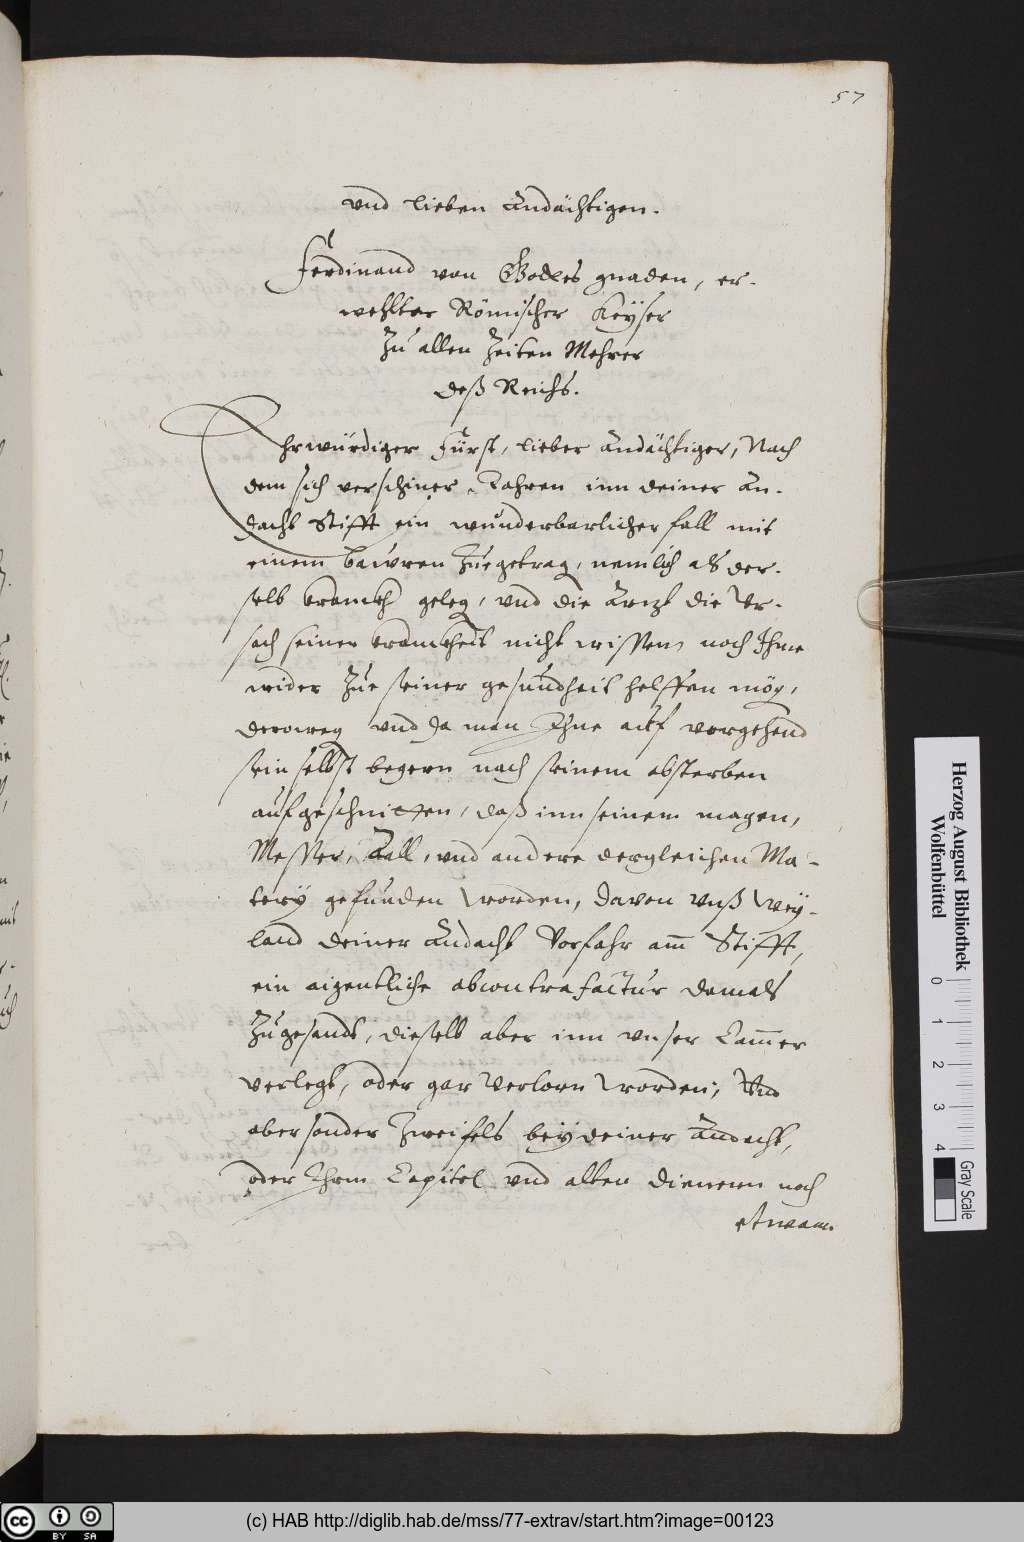 57
vnd lieben Andächtigen.
Ferdinand von Gottes gnaden, er-
wehlter Römischer Keyser
Zu allen Zeiten Mehrer
deß Reichs.
Ehrwürdiger Fürst, lieber Andächtiger, Nach
dem sich verschiner Jahren inn deiner An-
dacht Stifft ein wunderbarlicher fall mit
einem bawren Zuegetrag, nemlich als der-
selb kranckh geleg, vnd die Artzt die Vr-
sach seiner kranckheit nicht wissen noch Ihme
wider Zue seiner gesundheit helffen mög,
deroweg vnd da man Ihne auf vorgehend
sein selbst begern nach seinem absterben
aufgeschnitten, daß inn seinem magen,
Messer, und andere dergleichen Ma-
tery gefunden worden, davon vnß wey-
land deiner Andacht Vorfahr am Stifft,
ein aigentliche abcontrafactur damals
Zugesandt, dieselb aber inn vnser Cammer
verlegt, oder gar verlorn worden, Vnd
aber sonder Zweifels bey deiner Andacht,
oder Ihrm Capitel vnd alten dienern noch
etwann
Herzog August Bibliothek
Wolfenbüttel
0 1 2 3 4
Gray Scale
cc BY SA
(c) HAB http://diglib.hab.de/mss/77-extrav/start.htm?image=00123